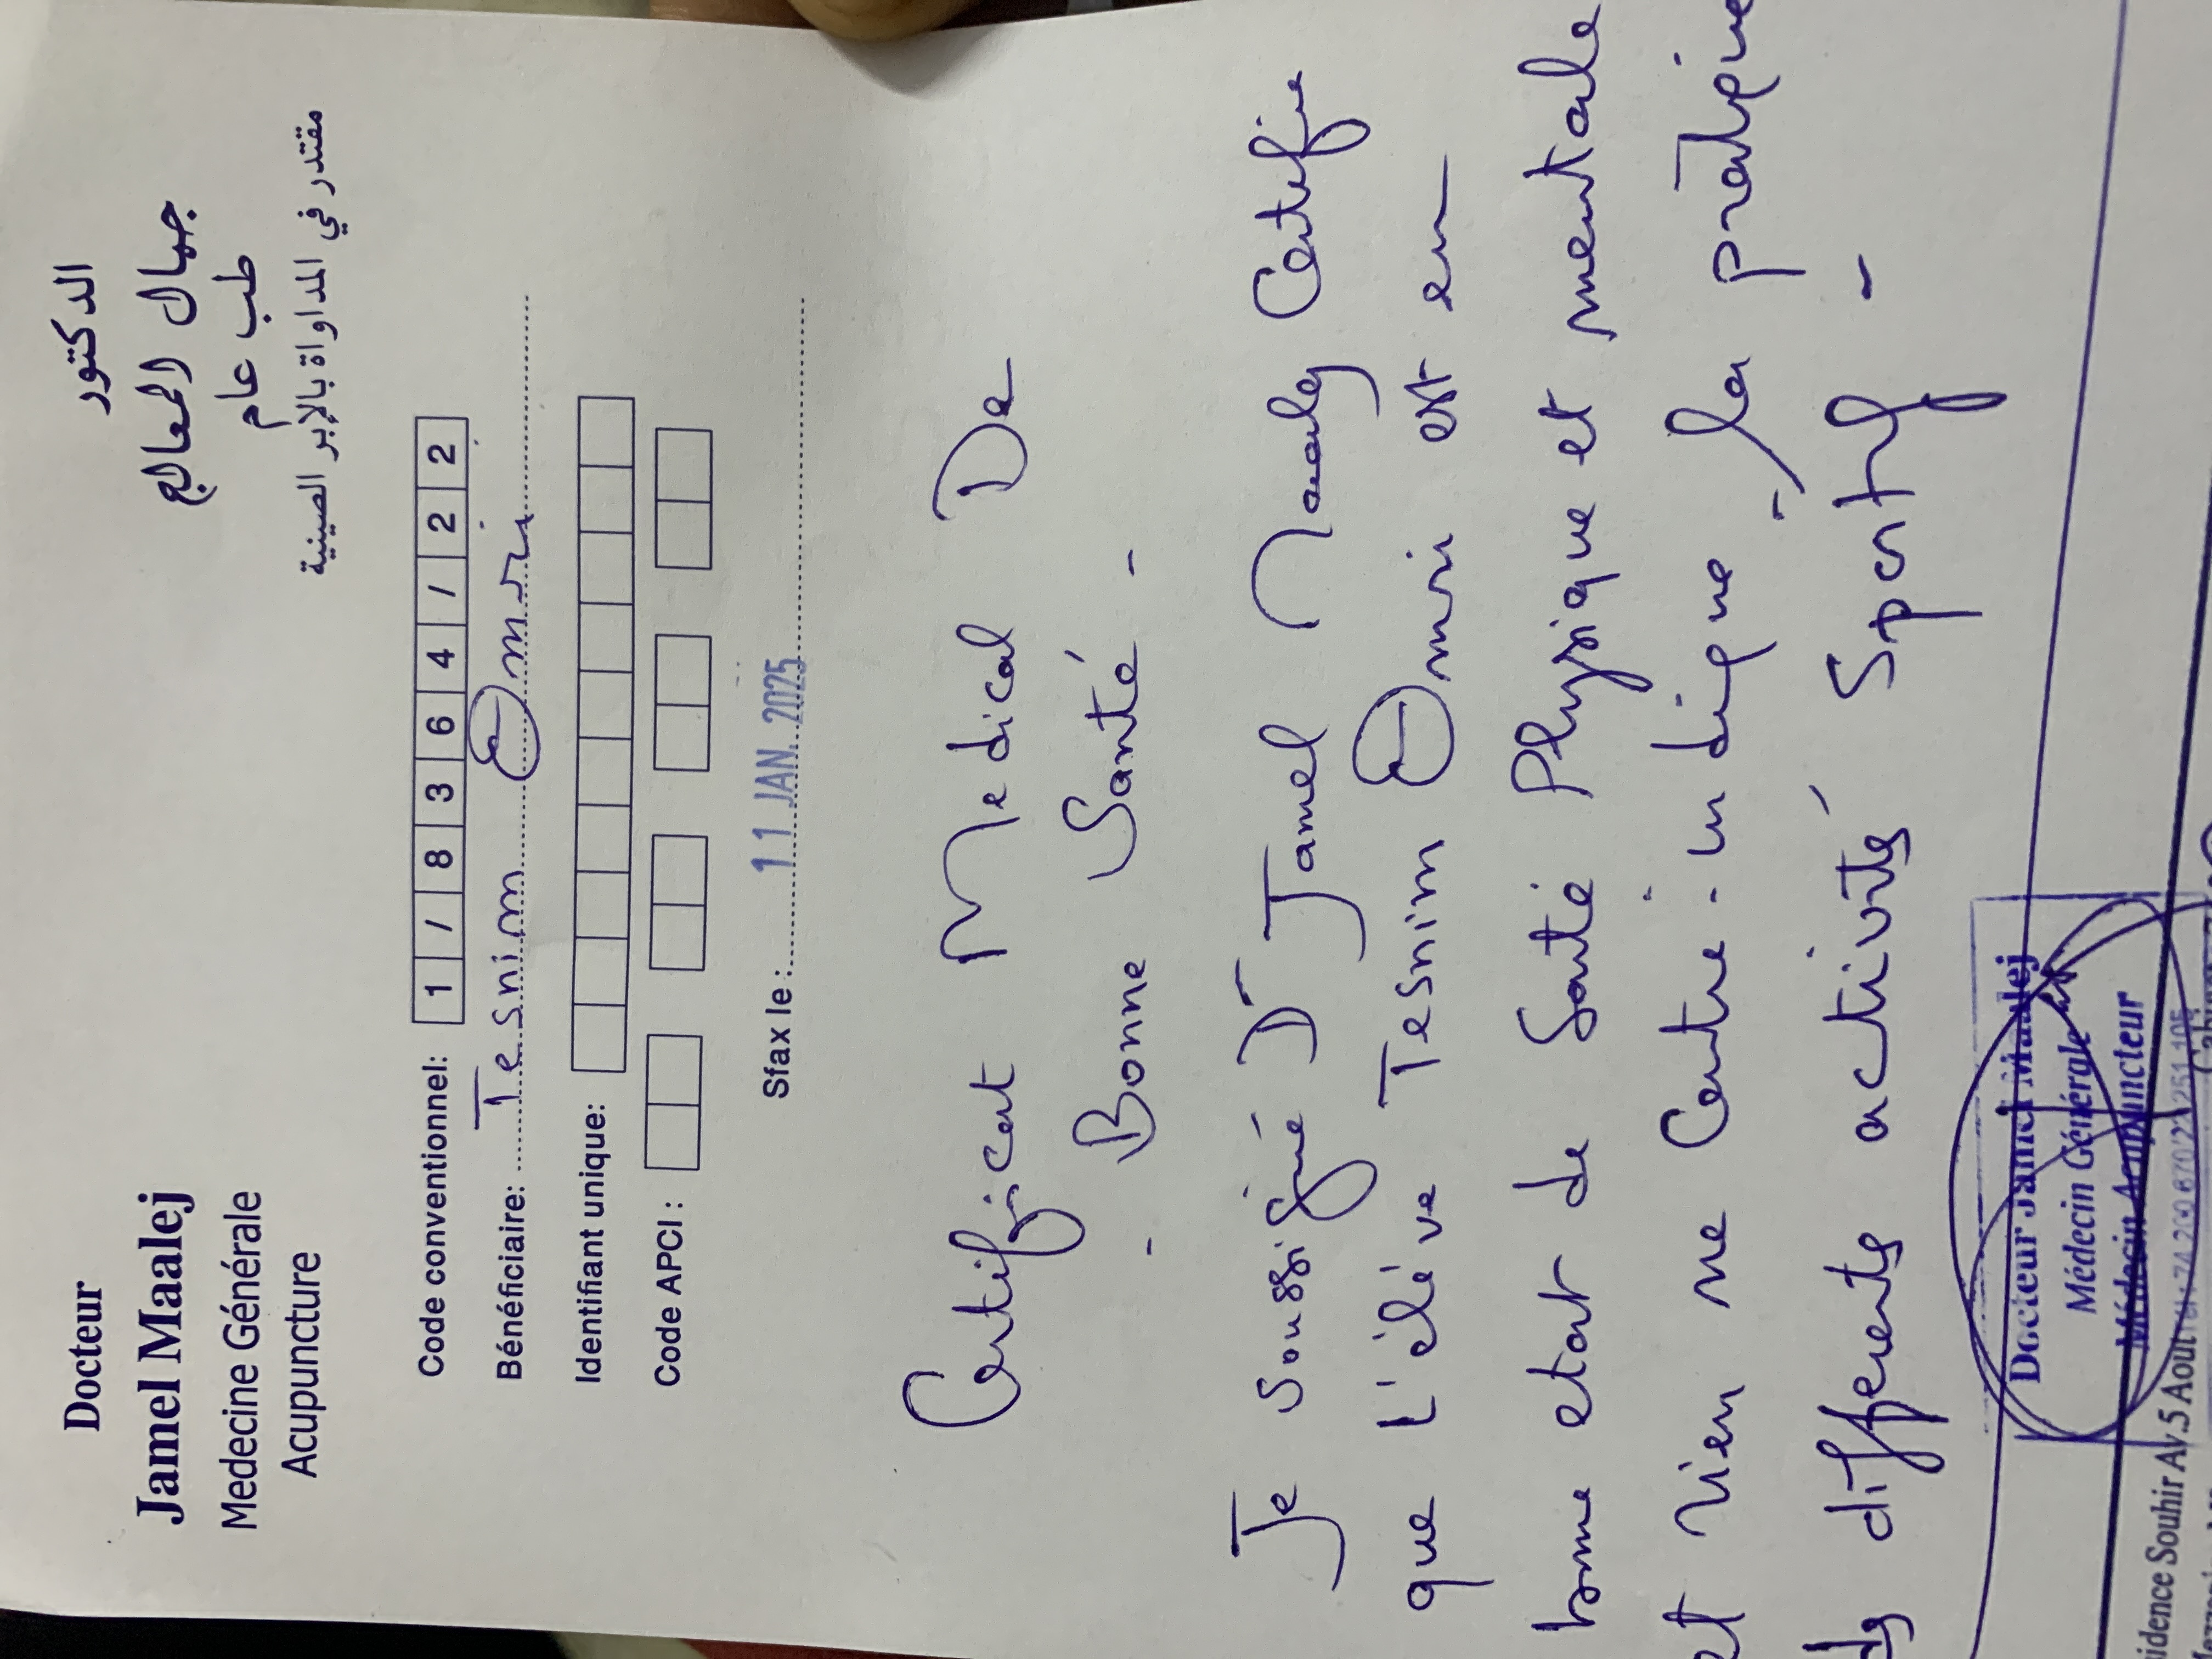 Docteur
Jamel Maalej
Medecine Générale
Acupuncture
الدكتور
جمال المعالج
طب عام
مقتدر في المداواة بالإبر الصينية
Code conventionnel: 1 / 8 3 6 4 / 2 2
Bénéficiaire: Tesnim Omri
Identifiant unique:
Code APCI :
Sfax le : 11 JAN. 2025
Certificat Medical De
- Bonne Santé -
Je soussigné Dr Jamel Maalej Certifie
que L'élève Tesnim Omri est en
bonne etat de Santé Physique et mentale
et rien ne Contre-indique la pratique
ds différents activités Sportif -
Docteur Jamel Maalej
Médecin Générale
Médecin Acupuncteur
idence Souhir Av.5 Aout